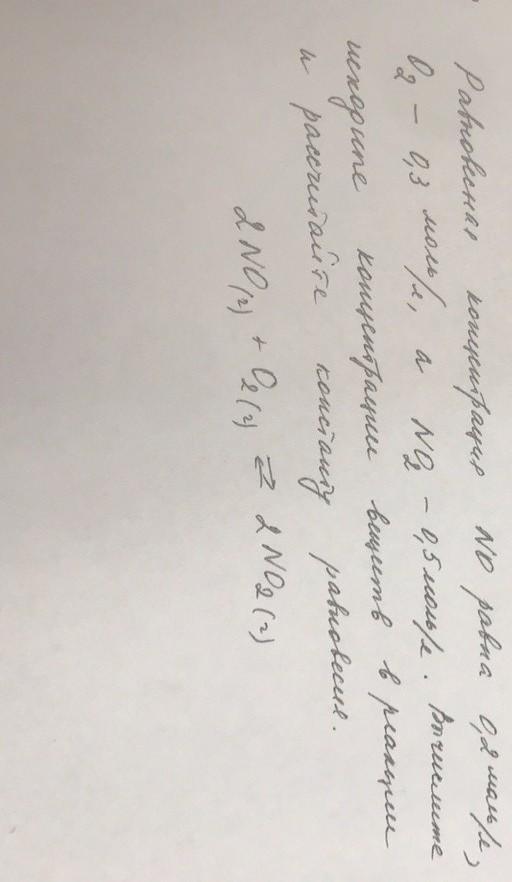 Равновесная концентрация NO равна 0,2 моль/л,
O₂ – 0,3 моль/л, а NO₂ – 0,5 моль/л. Вычислите
исходные концентрации веществ в реакции
и рассчитайте константу равновесия.
2 NO(г) + O₂(г) ⇄ 2 NO₂(г)